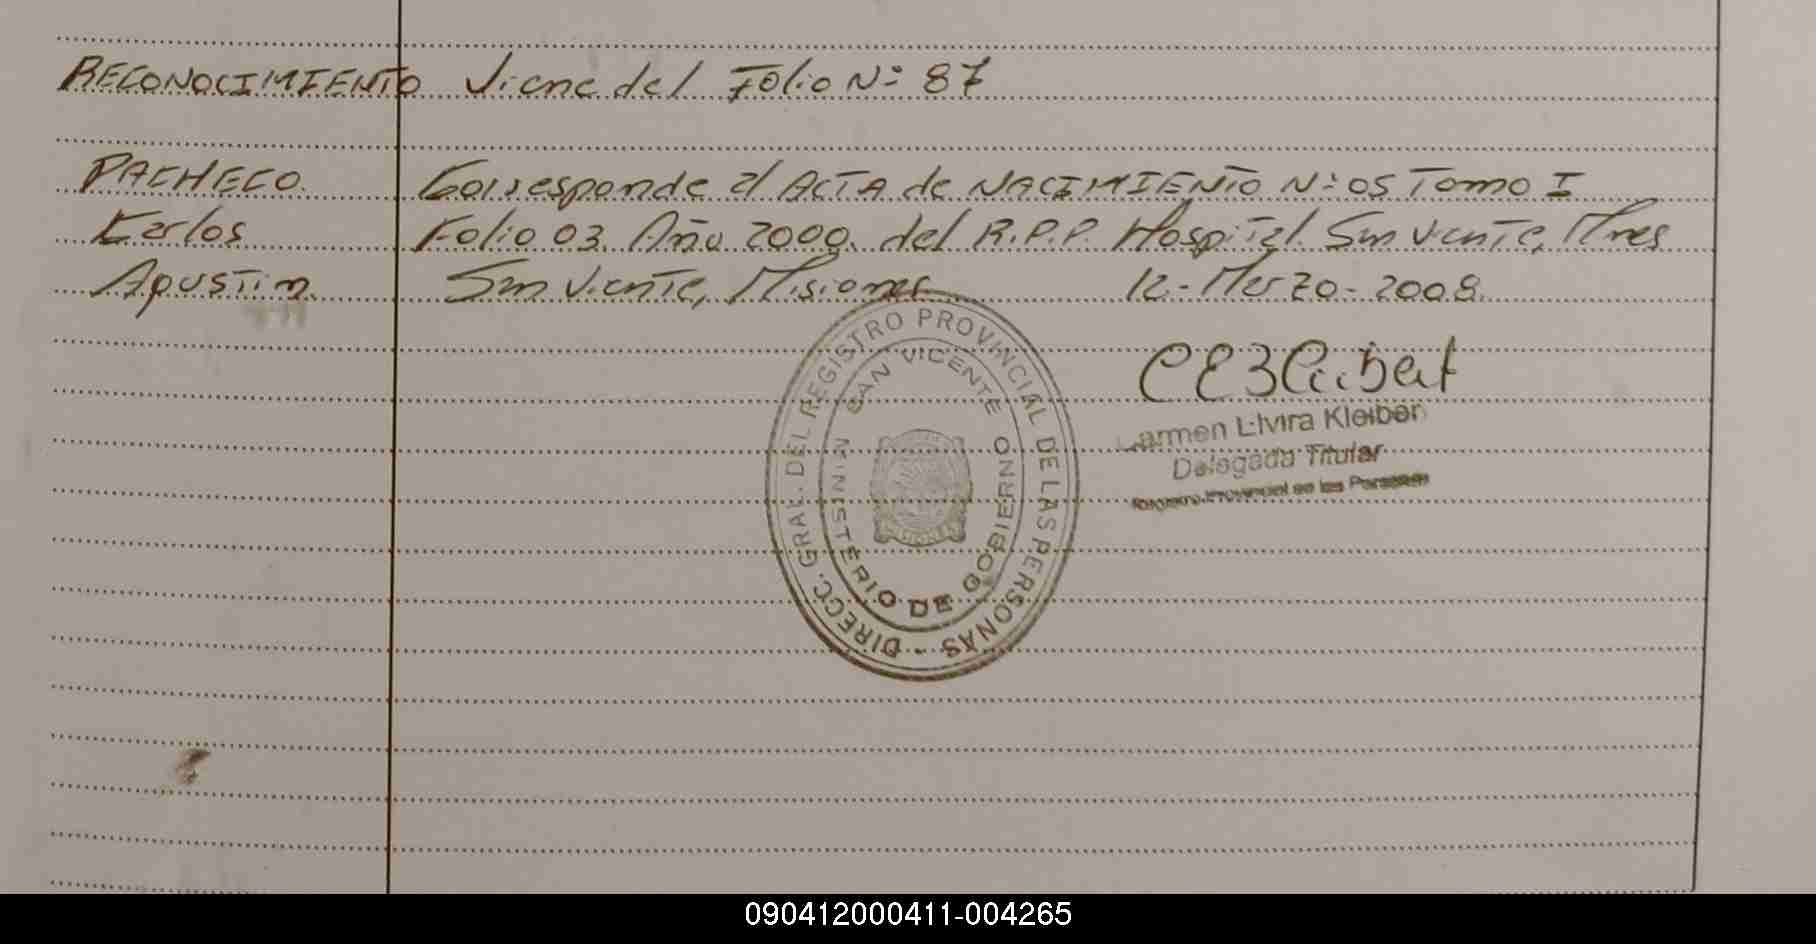 RECONOCIMIENTO Viene del Folio N: 87
PACHECO Corresponde al ACTA de NACIMIENTO N: 05 Tomo I
Karlos Folio 03. Año 2000. del R.P.P. Hospital San Vicente, Mnes
Agustin San Vicente, Misiones 12-Marzo-2008.
DIRECC. GRAL. DEL REGISTRO PROVINCIAL DE LAS PERSONAS -
SAN VICENTE
MINISTERIO DE GOBIERNO
Carmen Elvira Kleiber
Delegada Titular
Registro Provincial de las Personas
090412000411-004265